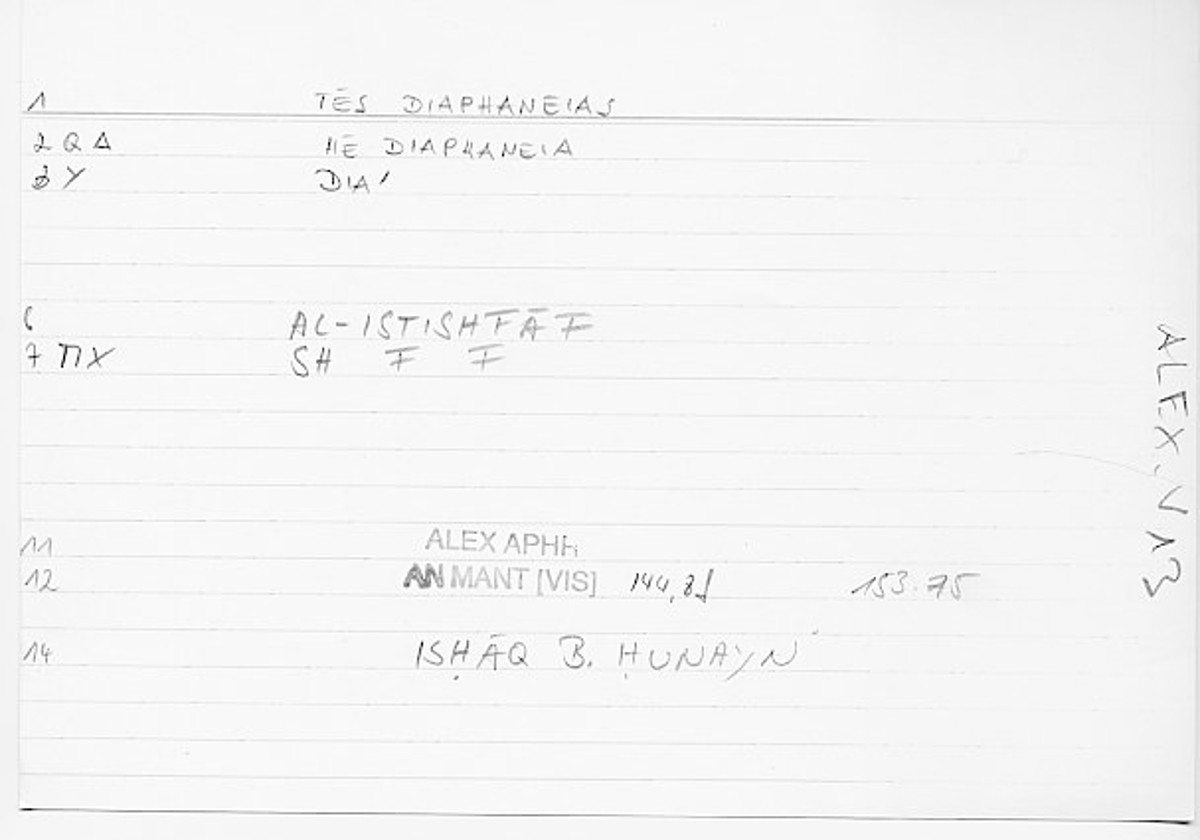 1 TĒS DIAPHANEIAS
2 Q Δ HĒ DIAPHANEIA
3 Y DIA'
6 AL-ISTISHFĀF
7 ΠX SH F F
11 ALEX APHR
12 AN MANT [VIS] 144,8f 153.75
14 ISḤĀQ B. ḤUNAYN
ALEX. V 13